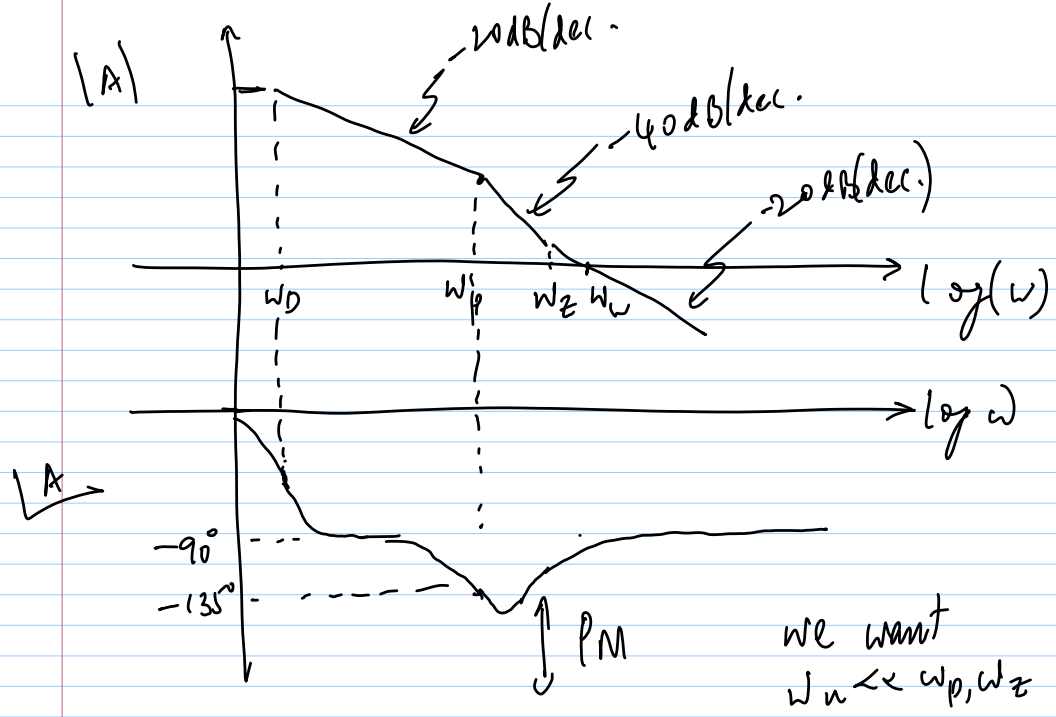 -20dB/dec.
|A|
-40dB/dec.
-20dB/dec.)
ωD
ωp
ωz
ωu
log(ω)
log ω
∠A
-90°
-135°
PM
we want
ωu << ωp, ωz